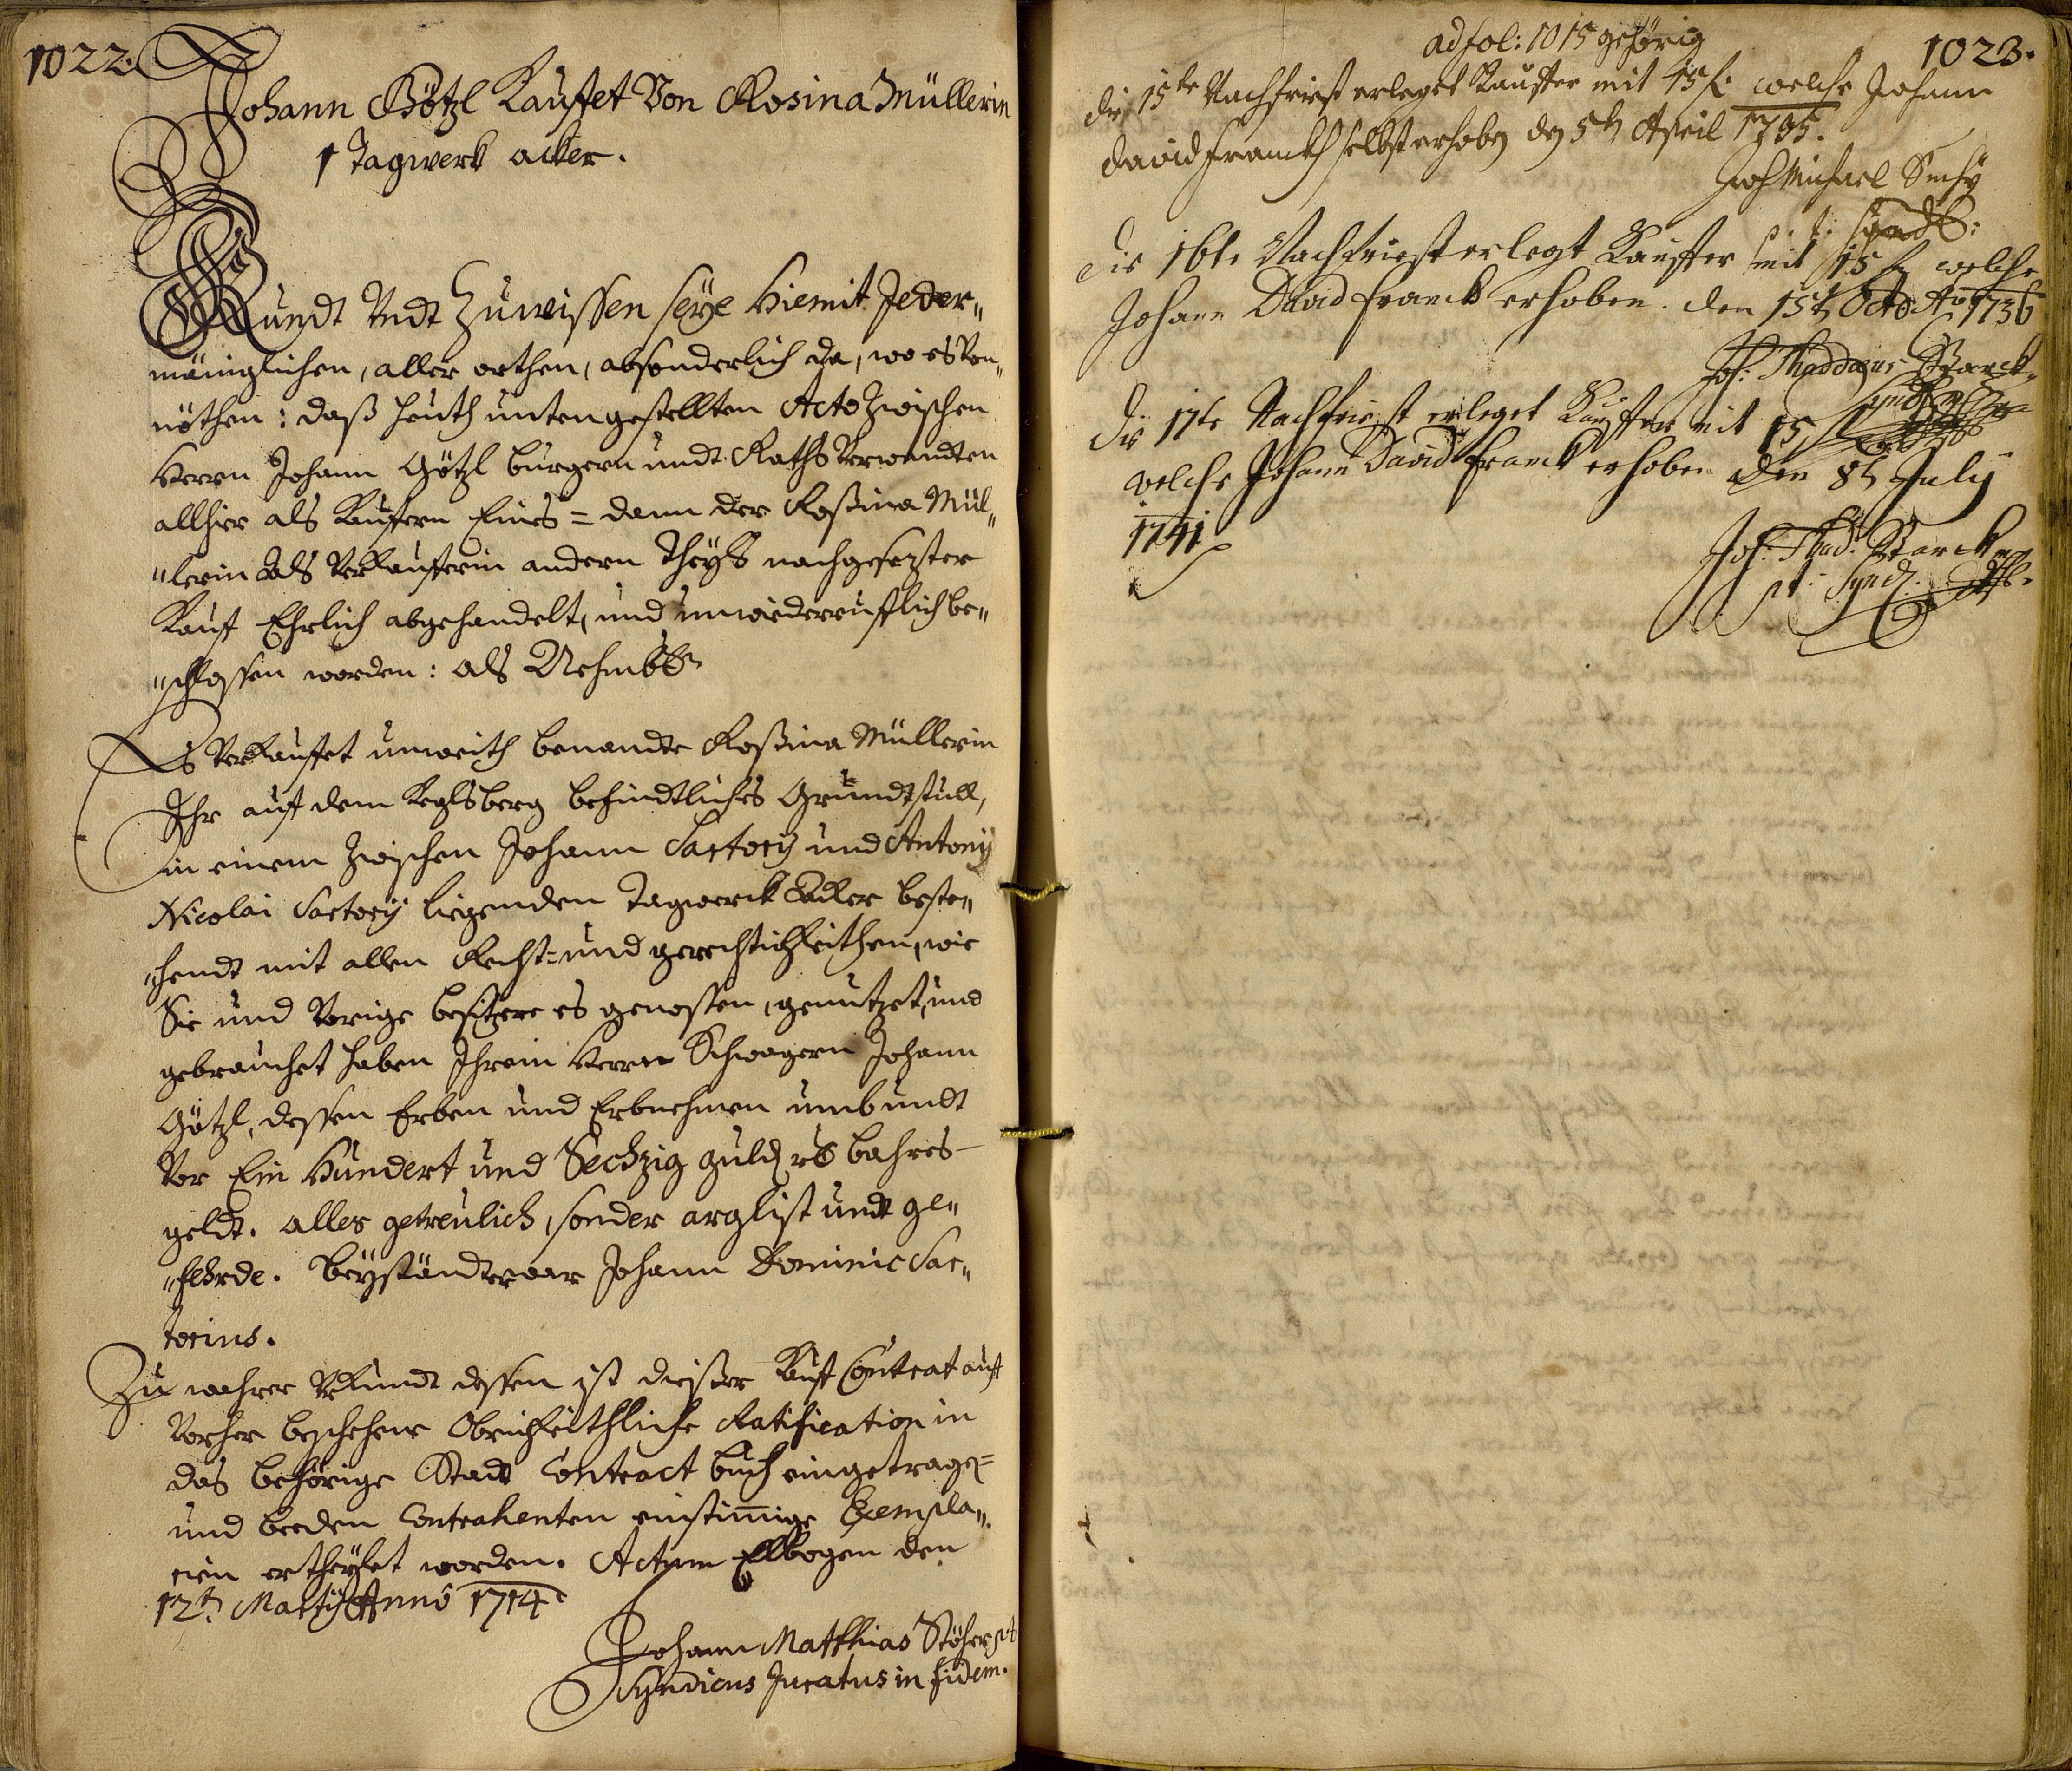 1022.
Johann Götzl Kauffet Von Rosina Müllerin
1 Tagwerk acker.
Kundt Undt Zuwissen seye hiemit Jeder„
mäniglichen, aller orthen, absonderlich da, wo es Von„
nöthen: daß heuth unten gestellten Acto zwischen
Herrn Johann Götzl burgern undt Raths Verwandten
allhier als Kauffern Eines = dann der Rosina Mül„
„lerin als Verkaufferin andern Theyls nachgesezter
Kauf Ehrlich abgehandelt, und unwiederrufflich be„
„schlossen worden: als Nehmbl.
Es Verkauffet umweith benandte Rosina Müllerin
Ihr auf dem Keglsberg befindtliches Grundtstuck,
in einem zwischen Johann Sartory und Antony
Nicolai Sartory liegenden Tagwerck Acker beste„
„hendt mit allen Recht= und gerechtickheithen, wie
Sie und Vorige besitzere es genossen, genutzet, und
gebrauchet haben Ihrem Herrn Schwagern Johann
Götzl, dessen Erben und Erbnehmen umb undt
Vor Ein Hundert und Sechzig guld. bahres
geldt. alles getreulich, sonder arglist undt ge„
„fehrde. Beyständer war Johann Dominic Sar„
torius.
Zu wahrer Urkundt dessen ist dieser Kauf Contract auf
Vorher beschehene Obrickheithliche Ratification in
das behörige Stadt Contract buch eingetragen=
und beeden Contrahenten einstimmige Exempla„
rien ertheylet worden. Actum Ellbogen den
12t. Marty Anno 1714
Johann Matthias Stöhr pt
Syndicus Juratus in fidem.
ad fol: 1015 gehörig
1023.
die 15te Nachfriest erleget Kauffer mit 15 f. welche Johann
David Franckh selbst erhoben den 5t. April 1735.
Joh Michael
p. t. Synd:
die 16te Nachfriest erlegt Kauffer mit 15 f. welche
Johann David Franck erhoben. den 15t. Octo. Ao 1736
Joh: Thaddaeus Starck
Synd
die 17te Nachfriest erleget Kauffer mit 15 f
welche Johann David Franck erhoben den 8t. July
1741
Joh. Thad: Starck
pt. Synd.